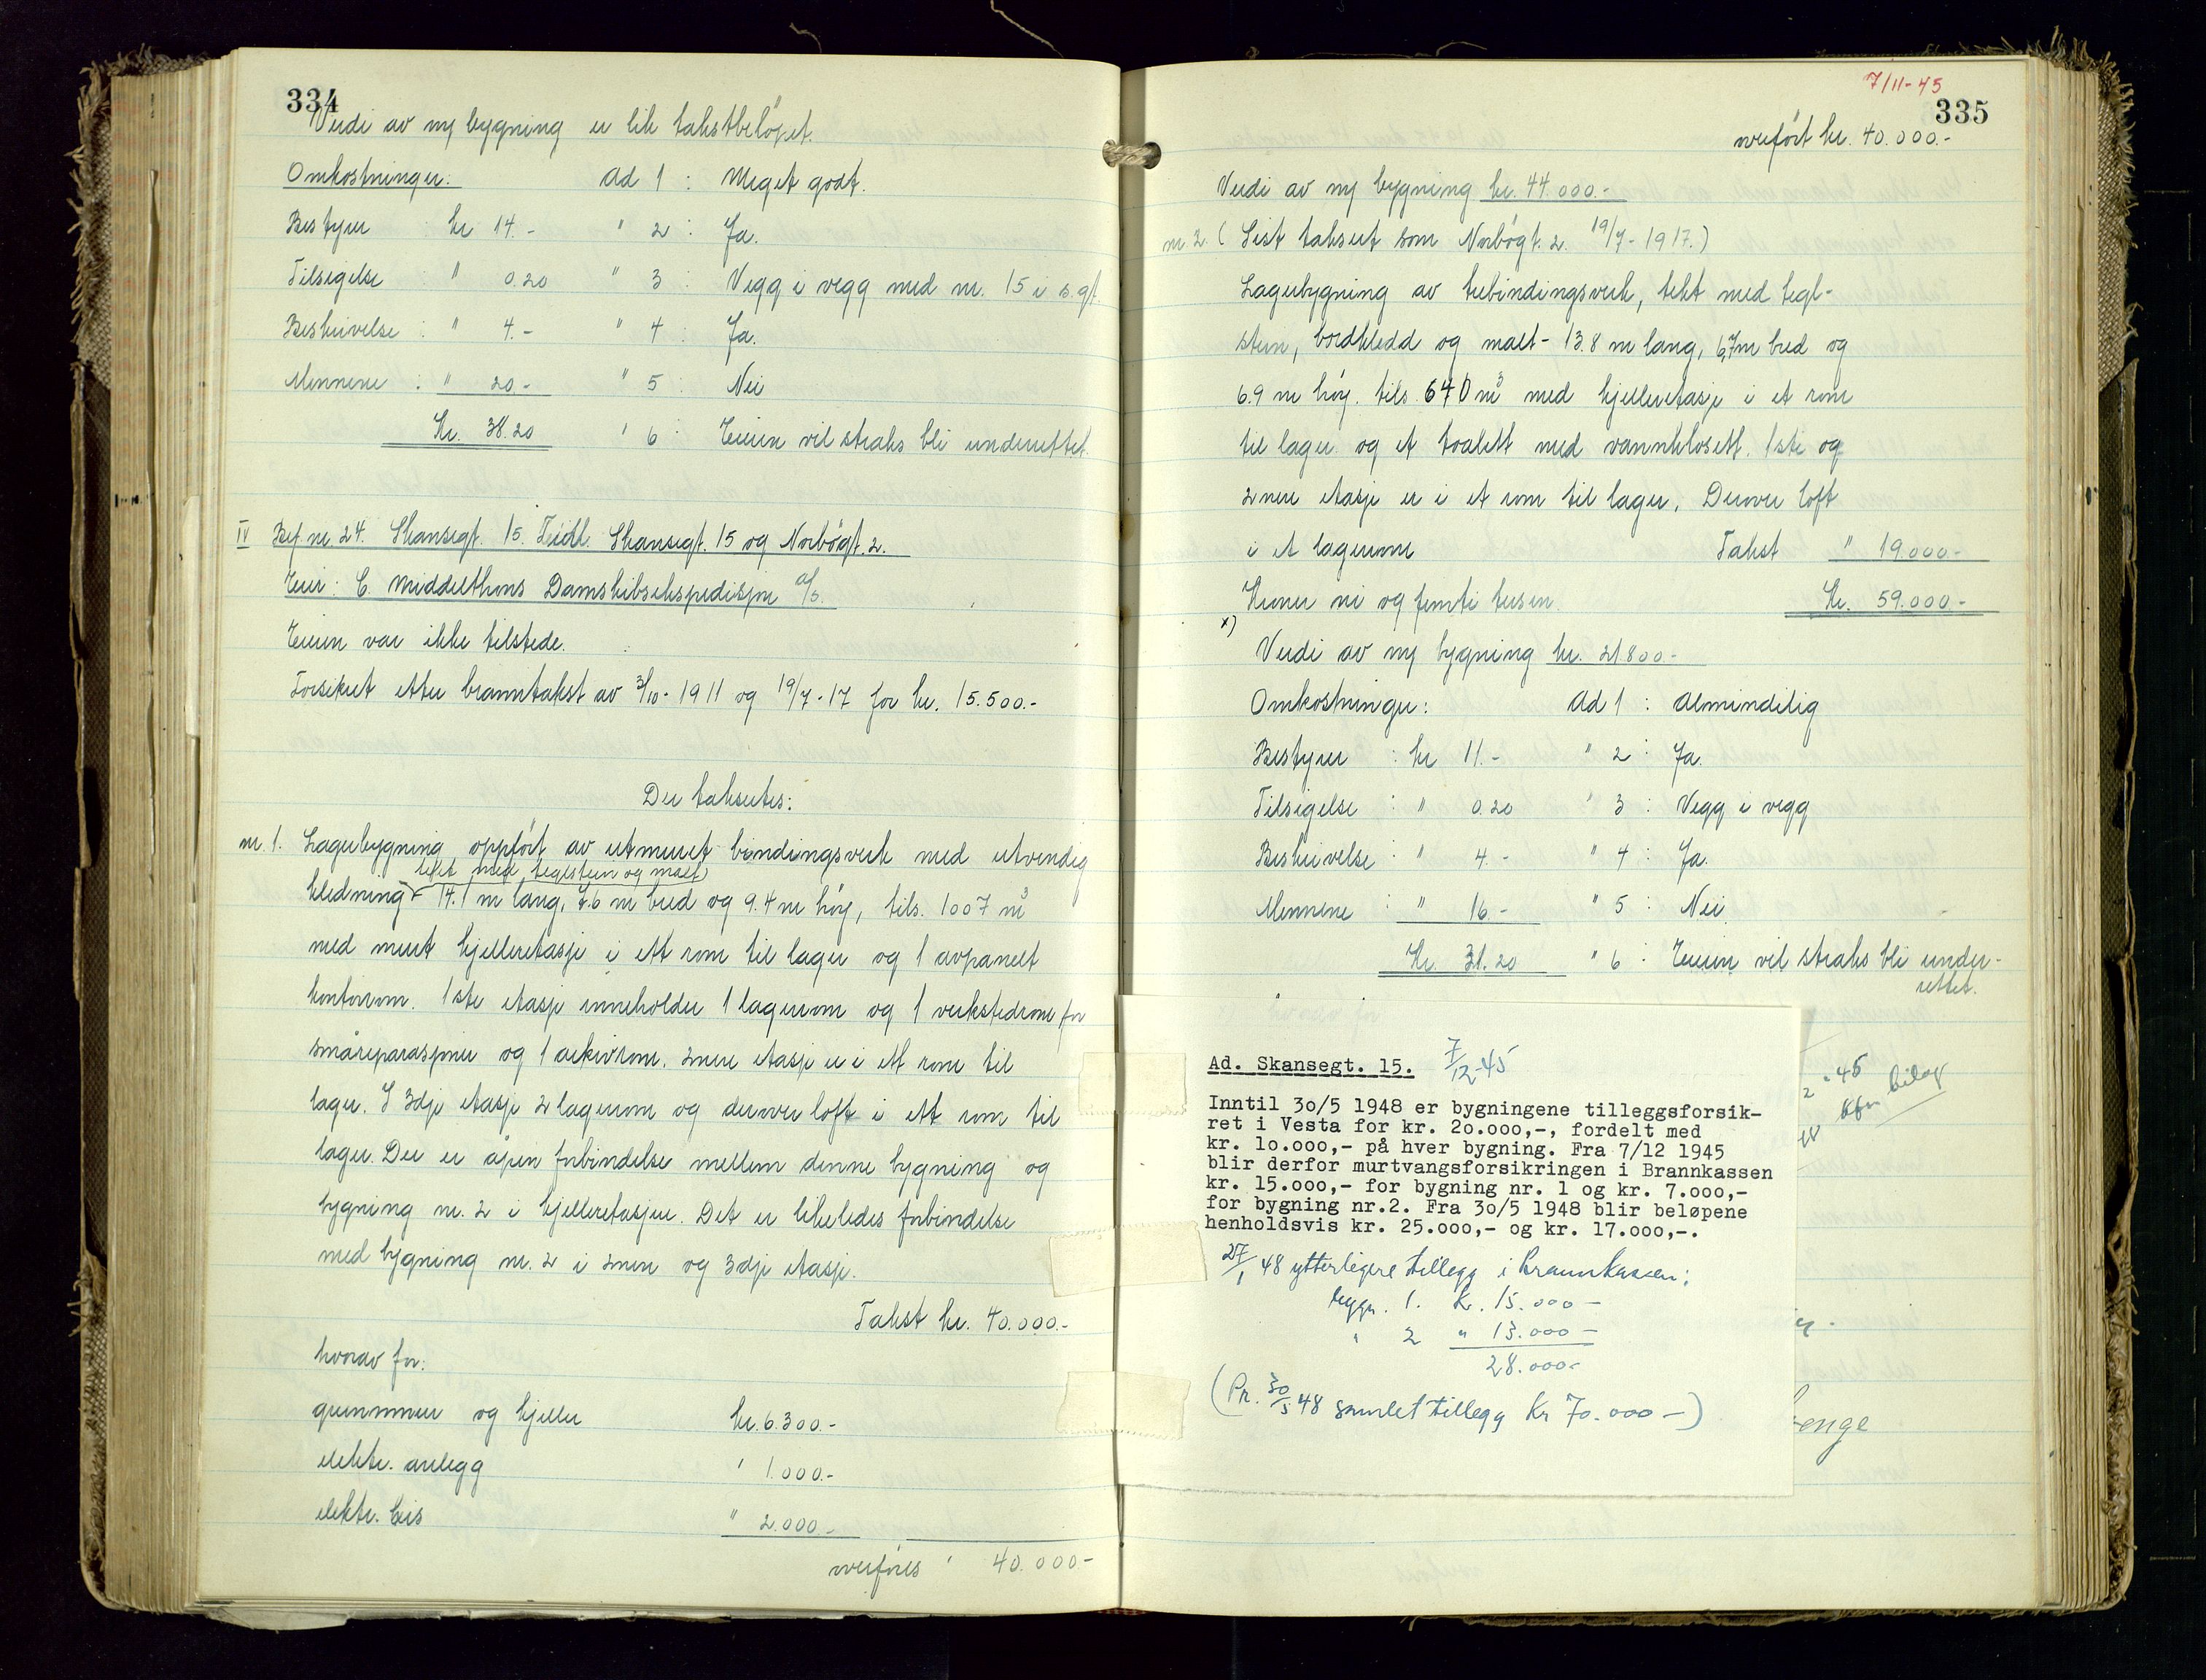 334
Verdi av ny bygning er lik takstbeløpet.
Omkostninger: ad 1 : Meget godt.
Bestyrer : kr 14.- " 2 : Ja.
Tilsigelse " 0.20 " 3 : Vegg i vegg med nr. 15 i s.gt.
Beskrivelse : " 4.- " 4 : Ja.
Mennene : " 20.- " 5 : Nei
Kr. 38.20 " 6 : Eieren vil straks bli underrettet.
IV Bef. nr. 24. Skansegt. 15. Skansegt. 15 og Norbøgt. 2.
Eier: C. Middelthons Damskibsekspedisjon a/s.
Eieren var ikke tilstede.
Forsikret etter branntakst av 3/10-1911 og 19/7-17 for kr. 15.500.-
Der takseres:
nr. 1. Lagerbygning oppført av utmuret bindingsverk med utvendig
tekt med teglstein og malt
kledning - 14.1 m lang, 7.6 m bred og 9.4 m høy, tils. 1007 m3
med muret kjelleretasje i ett rom til lager og 1 avpanelt
kontorrom. 1ste etasje inneholder 1 lagerrom og 1 verkstedrom for
småreparasjoner og 1 arkivrom. 2nen etasje er i ett rom til
lager. I 3dje etasje 2 lagerrom og derover loft i ett rom til
lager. Der er åpen forbindelse mellem denne bygning og
bygning nr. 2 i kjelleretasjen. Det er likeledes forbindelse
med bygning nr. 2 i 2nen og 3dje etasje.
Takst kr. 40.000.-
hvorav for:
grunnmur og kjeller kr. 6.300.-
elektr. anlegg " 1.000.-
elektr. heis " 2.000.-
overføres " 40.000-
7/11-45
335
overført kr. 40.000.-
Verdi av ny bygning kr. 44.000.-
nr 2. (Sist taksert som Norbøgt. 2. 19/7-1917.)
Lagerbygning av trebindingsverk, tekt med tegl-
stein, bordkledd og malt - 13.8 m lang, 6,7m bred og
6.9 m høy. tils. 640 m3 med kjelleretasje i et rom
til lager og et toalett med vannklosett. 1ste og
2nen etasje er i et rom til lager. Derover loft
i et lagerrom Takst " 19.000.-
Kroner ni og femti tusen. Kr. 59.000.-
x)
Verdi av ny bygning kr. 21.800.-
Omkostninger: ad 1 : Almindelig
Bestyrer : kr 11.- " 2 : Ja.
Tilsigelse : " 0.20 " 3 : Vegg i vegg
Beskrivelse : " 4.- " 4 : Ja.
Mennene : " 16.- " 5 : Nei
Kr. 31.20 " 6 : Eieren vil straks bli under-
rettet.
Ad. Skansegt. 15. 7/12-45
Inntil 30/5 1948 er bygningene tilleggsforsik-
ret i Vesta for kr. 20.000,-, fordelt med
kr. 10.000,- på hver bygning. Fra 7/12 1945
blir derfor murtvangsforsikringen i Brannkassen
kr. 15.000,- for bygning nr. 1 og kr. 7.000,-
for bygning nr.2. Fra 30/5 1948 blir beløpene
henholdsvis kr. 25.000,- og kr. 17.000,-.
27/1 48 ytterligere tillegg i Brannkassen:
bygn. 1. kr. 15.000-
" 2 " 13.000-
28.000-
(Pr. 30/5 48 samlet tillegg kr 70.000-)
2-45
bilag
enge